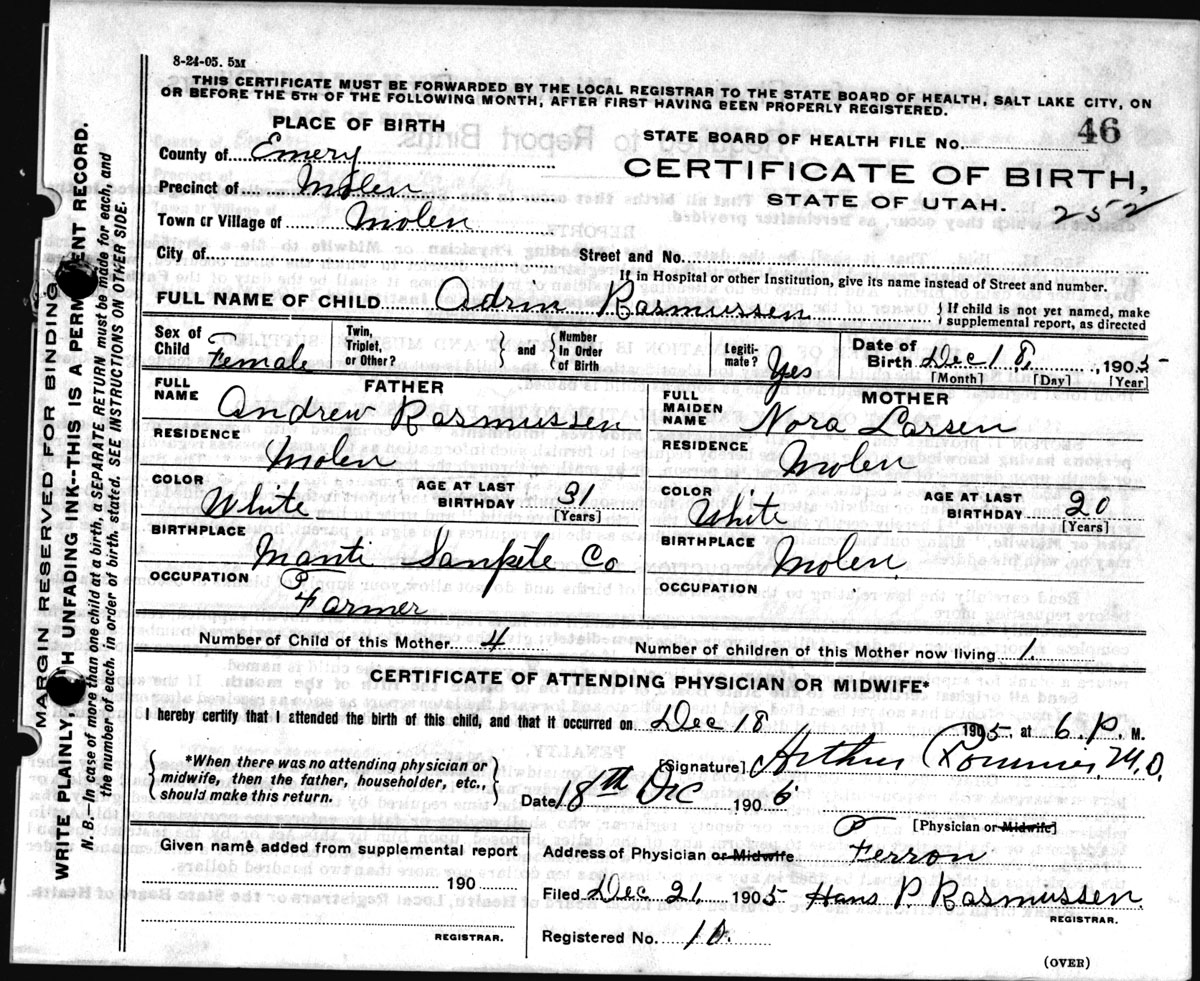 8-24-05. 5M
THIS CERTIFICATE MUST BE FORWARDED BY THE LOCAL REGISTRAR TO THE STATE BOARD OF HEALTH, SALT LAKE CITY, ON
OR BEFORE THE 5TH OF THE FOLLOWING MONTH, AFTER FIRST HAVING BEEN PROPERLY REGISTERED.
PLACE OF BIRTH
STATE BOARD OF HEALTH FILE No. 46
County of Emery
CERTIFICATE OF BIRTH,
Precinct of Molen
STATE OF UTAH. 252
Town or Village of Molen
City of Street and No.
If in Hospital or other Institution, give its name instead of Street and number.
FULL NAME OF CHILD Rasmussen { If child is not yet named, make
supplemental report, as directed
Sex of Child Female
Twin, Triplet, or Other? } and { Number In Order of Birth
Legiti-mate? Yes
Date of Birth Dec 18, 1905
[Month] [Day] [Year]
FATHER
FULL NAME Andrew Rasmussen
MOTHER
FULL MAIDEN NAME Nora Larsen
RESIDENCE Molen
RESIDENCE Molen
COLOR White AGE AT LAST BIRTHDAY 31 [Years]
COLOR White AGE AT LAST BIRTHDAY 20 [Years]
BIRTHPLACE Manti Sanpete Co
BIRTHPLACE Molen
OCCUPATION Farmer
OCCUPATION
Number of Child of this Mother 4 Number of children of this Mother now living 1.
CERTIFICATE OF ATTENDING PHYSICIAN OR MIDWIFE*
I hereby certify that I attended the birth of this child, and that it occurred on Dec 18 1905, at 6 P. M.
*When there was no attending physician or
midwife, then the father, householder, etc.,
should make this return.
[Signature] Arthur M.D.
Date 18th Dec 1905
[Physician or Midwife]
Given name added from supplemental report
190
REGISTRAR.
Address of Physician or Midwife Ferron
Filed Dec 21, 1905 Hans P Rasmussen
REGISTRAR.
Registered No. 10.
(OVER)
MARGIN RESERVED FOR BINDING
WRITE PLAINLY, WITH UNFADING INK--THIS IS A PERMANENT RECORD.
N. B.--In case of more than one child at a birth, a SEPARATE RETURN must be made for each, and
the number of each, in order of birth, stated. SEE INSTRUCTIONS ON OTHER SIDE.